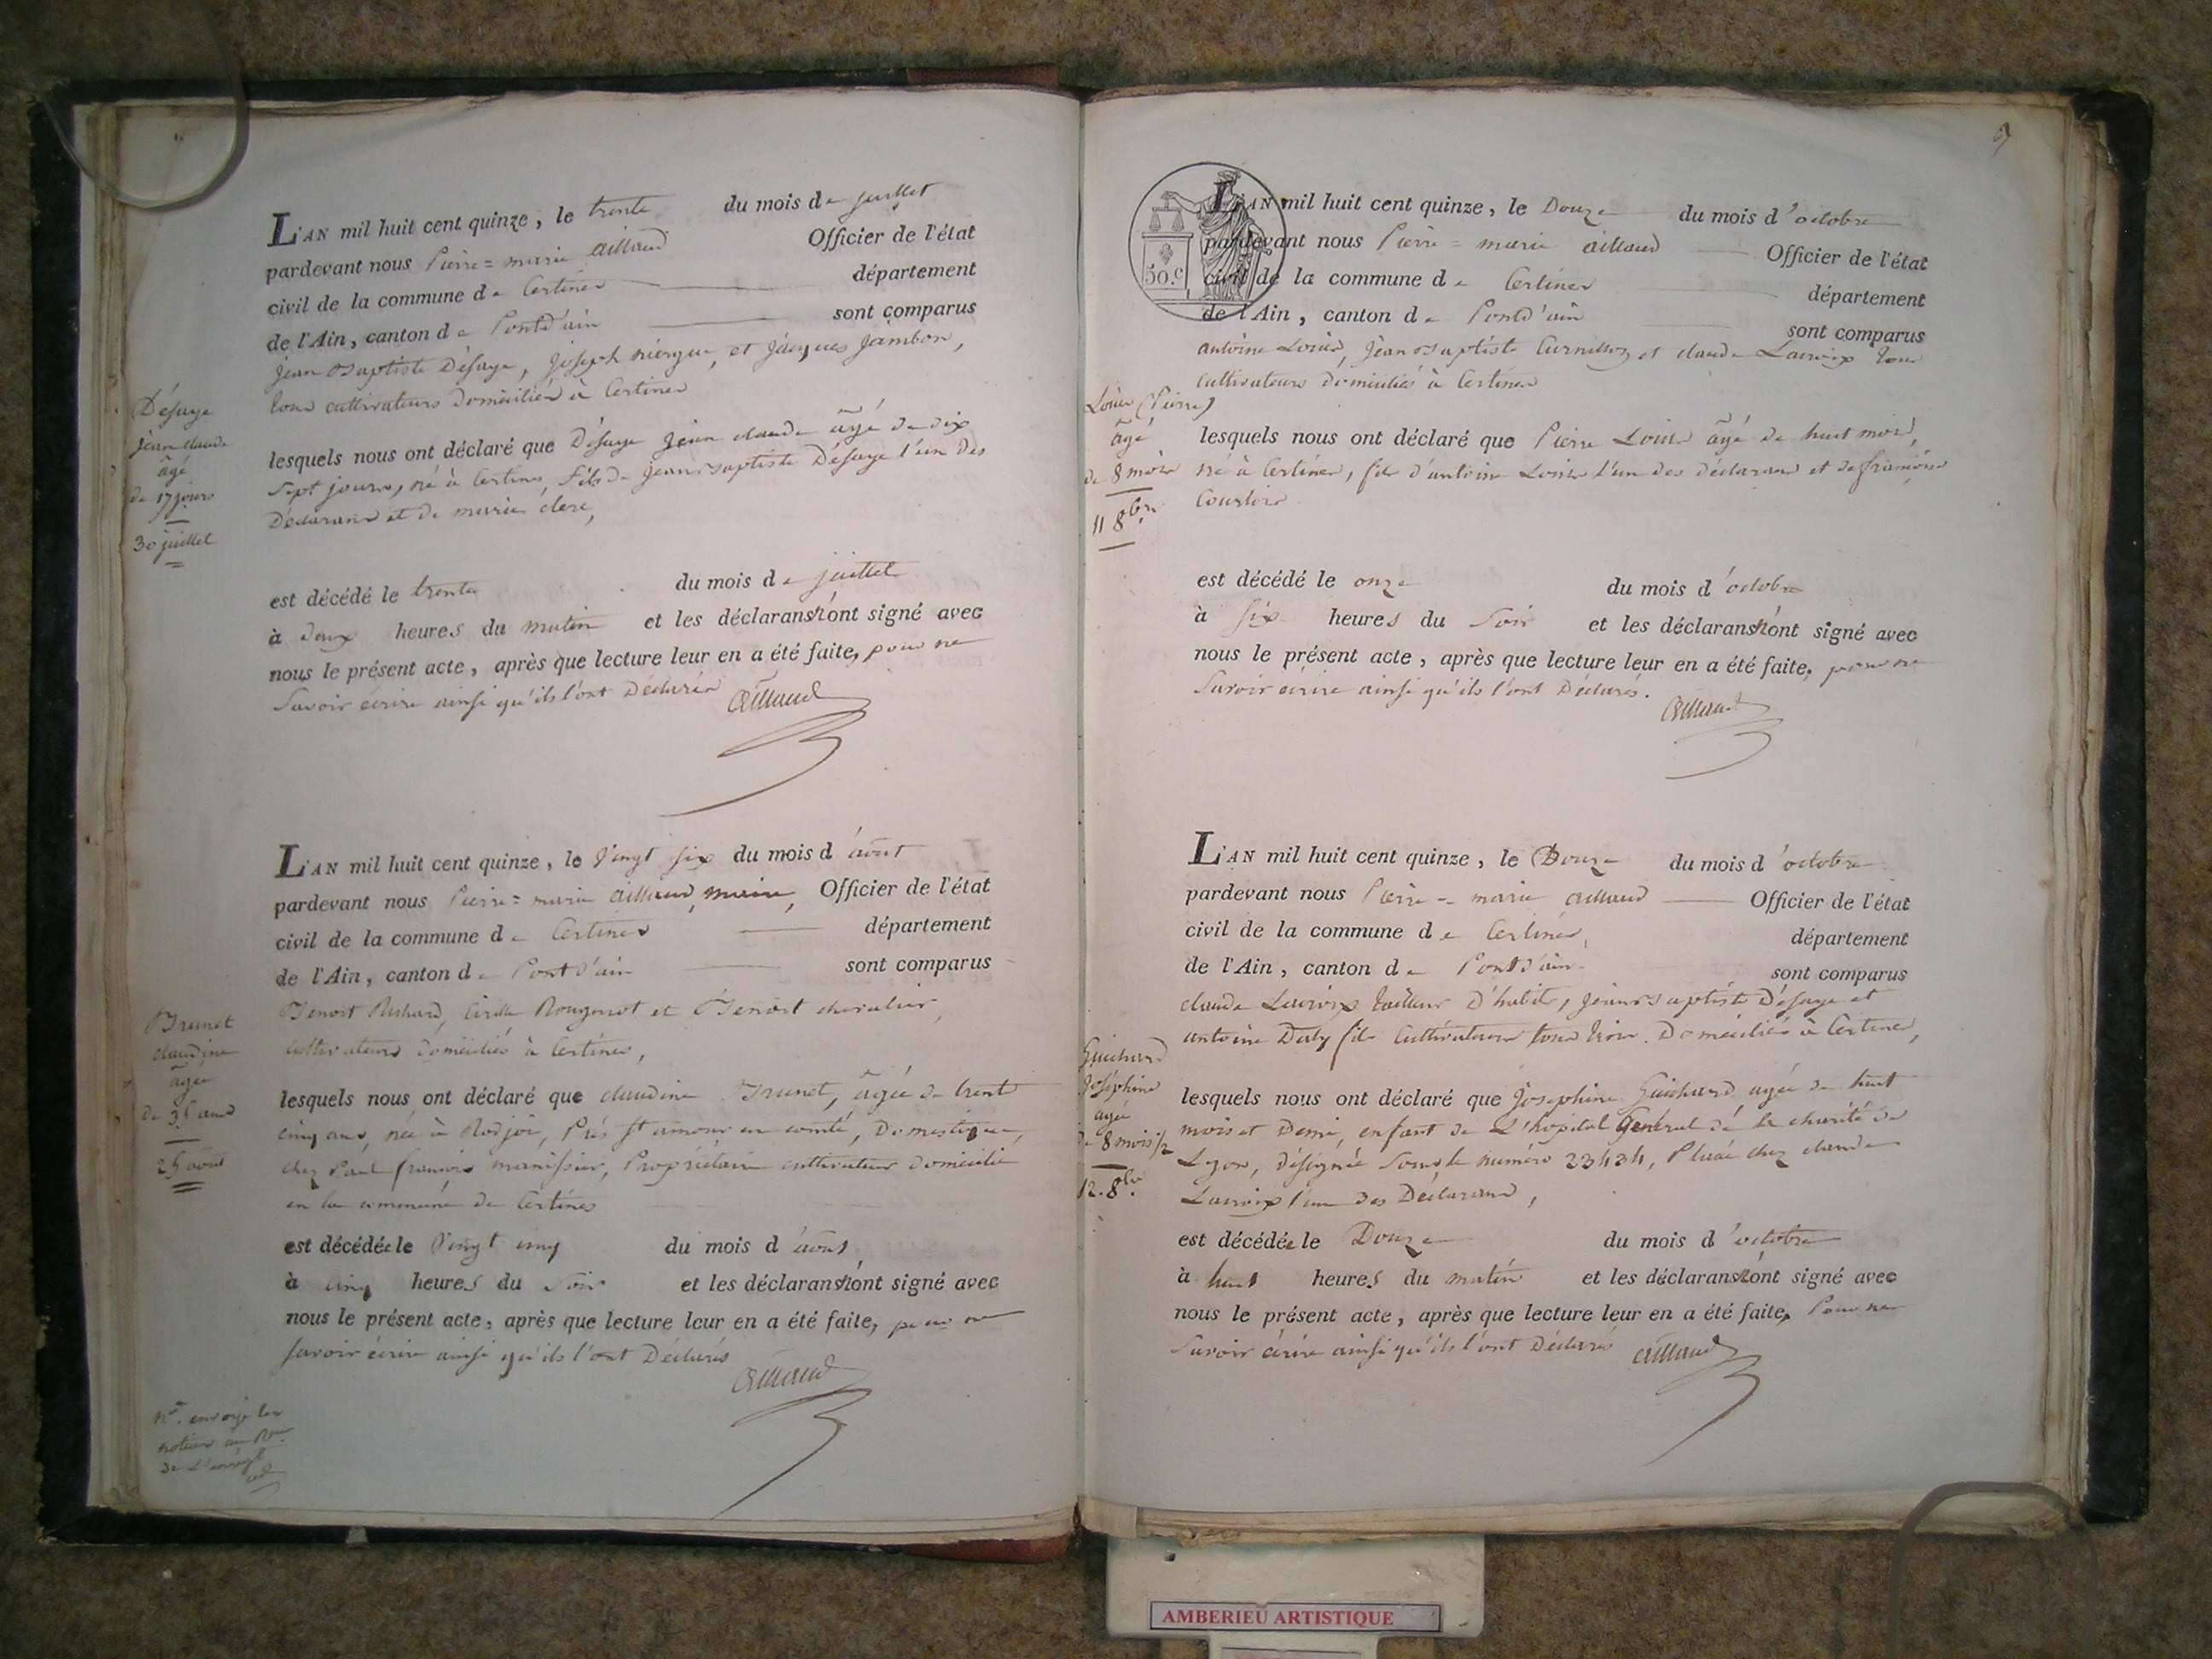 L'AN mil huit cent quinze, le trente du mois de juillet
pardevant nous Pierre = marie aillaud Officier de l'état
civil de la commune de Certines département
de l'Ain, canton de Pontd'ain sont comparus
jean Baptiste Désaye, joseph et jacques jambon,
tous cultivateurs Domiciliés à Certines
Désaye
jean claude
âgé
de 17 jours
30 juillet
lesquels nous ont déclaré que Désaye jean claude âgé de dix
sept jours, né à Certines, fils de jean Baptiste Désaye l'un des
Déclarans et de marie clerc,
est décédé le trente du mois de juillet
à deux heures du matin et les déclarans n'ont signé avec
nous le présent acte, après que lecture leur en a été faite, pour ne
Savoir écrire ainsi qu'ils l'ont Déclarés aillaud
L'AN mil huit cent quinze, le vingt six du mois d'août
pardevant nous Pierre = marie aillaud, maire, Officier de l'état
civil de la commune de Certines département
de l'Ain, canton de Pont d'ain sont comparus
Benoit Richard, Rougemot et Benoit chevalier,
cultivateurs domiciliés à Certines,
Brunet
claudine
âgée
de 35 ans
25 août
lesquels nous ont déclaré que claudine Brunet, âgée de trent
cinq ans, née à Près St amour en comté, Domestique,
chez Paul françois manissier, Propriétaire cultivateur domicilié
en la commune de Certines
est décédée le vingt cinq du mois d'août,
à cinq heures du soir et les déclarans n'ont signé avec
nous le présent acte, après que lecture leur en a été faite, pour ne
savoir écrire ainsi qu'ils l'ont Déclarés
aillaud
envoyé les
notices au
de L'enregt
L'AN mil huit cent quinze, le Douze du mois d'octobre
pardevant nous Pierre = marie aillaud Officier de l'état
civil de la commune de Certines département
de l'Ain, canton de Pontd'ain sont comparus
50.c
antoine Louis, jean Baptiste Curnillon et claude Lacroix tous
cultivateurs domiciliés à Certines
Louis (Pierre)
âgé
de 8 mois
11 8bre
lesquels nous ont déclaré que Pierre Louis âgé de huit mois,
né à Certines, fils d'antoine Louis l'un des déclarans et de françoise
Courtois
est décédé le onze du mois d'octobre
à six heures du Soir et les déclarans n'ont signé avec
nous le présent acte, après que lecture leur en a été faite, pour ne
Savoir écrire ainsi qu'ils l'ont Déclarés.
aillaud
L'AN mil huit cent quinze, le Douze du mois d'octobre
pardevant nous Pierre = marie aillaud Officier de l'état
civil de la commune de Certines, département
de l'Ain, canton de Pont d'ain sont comparus
claude Lacroix tailleur D'habits, jean Baptiste Désaye et
antoine Daty fils Cultivateurs tous trois Domiciliés à Certines,
Guichard
joséphine
agée
de 8 mois 1/2
12. 8bre
lesquels nous ont déclaré que josephine Guichard agée de huit
mois et Demi, enfant de L'hopital Général de la charité de
Lyon, désignée sous le numéro 23434, Placée chez claude
Lacroix l'un des Déclarans,
est décédée le Douze du mois d'octobre
à huit heures du matin et les déclarans n'ont signé avec
nous le présent acte, après que lecture leur en a été faite, Pour ne
Savoir écrire ainsi qu'ils l'ont Déclarés aillaud
AMBERIEU ARTISTIQUE